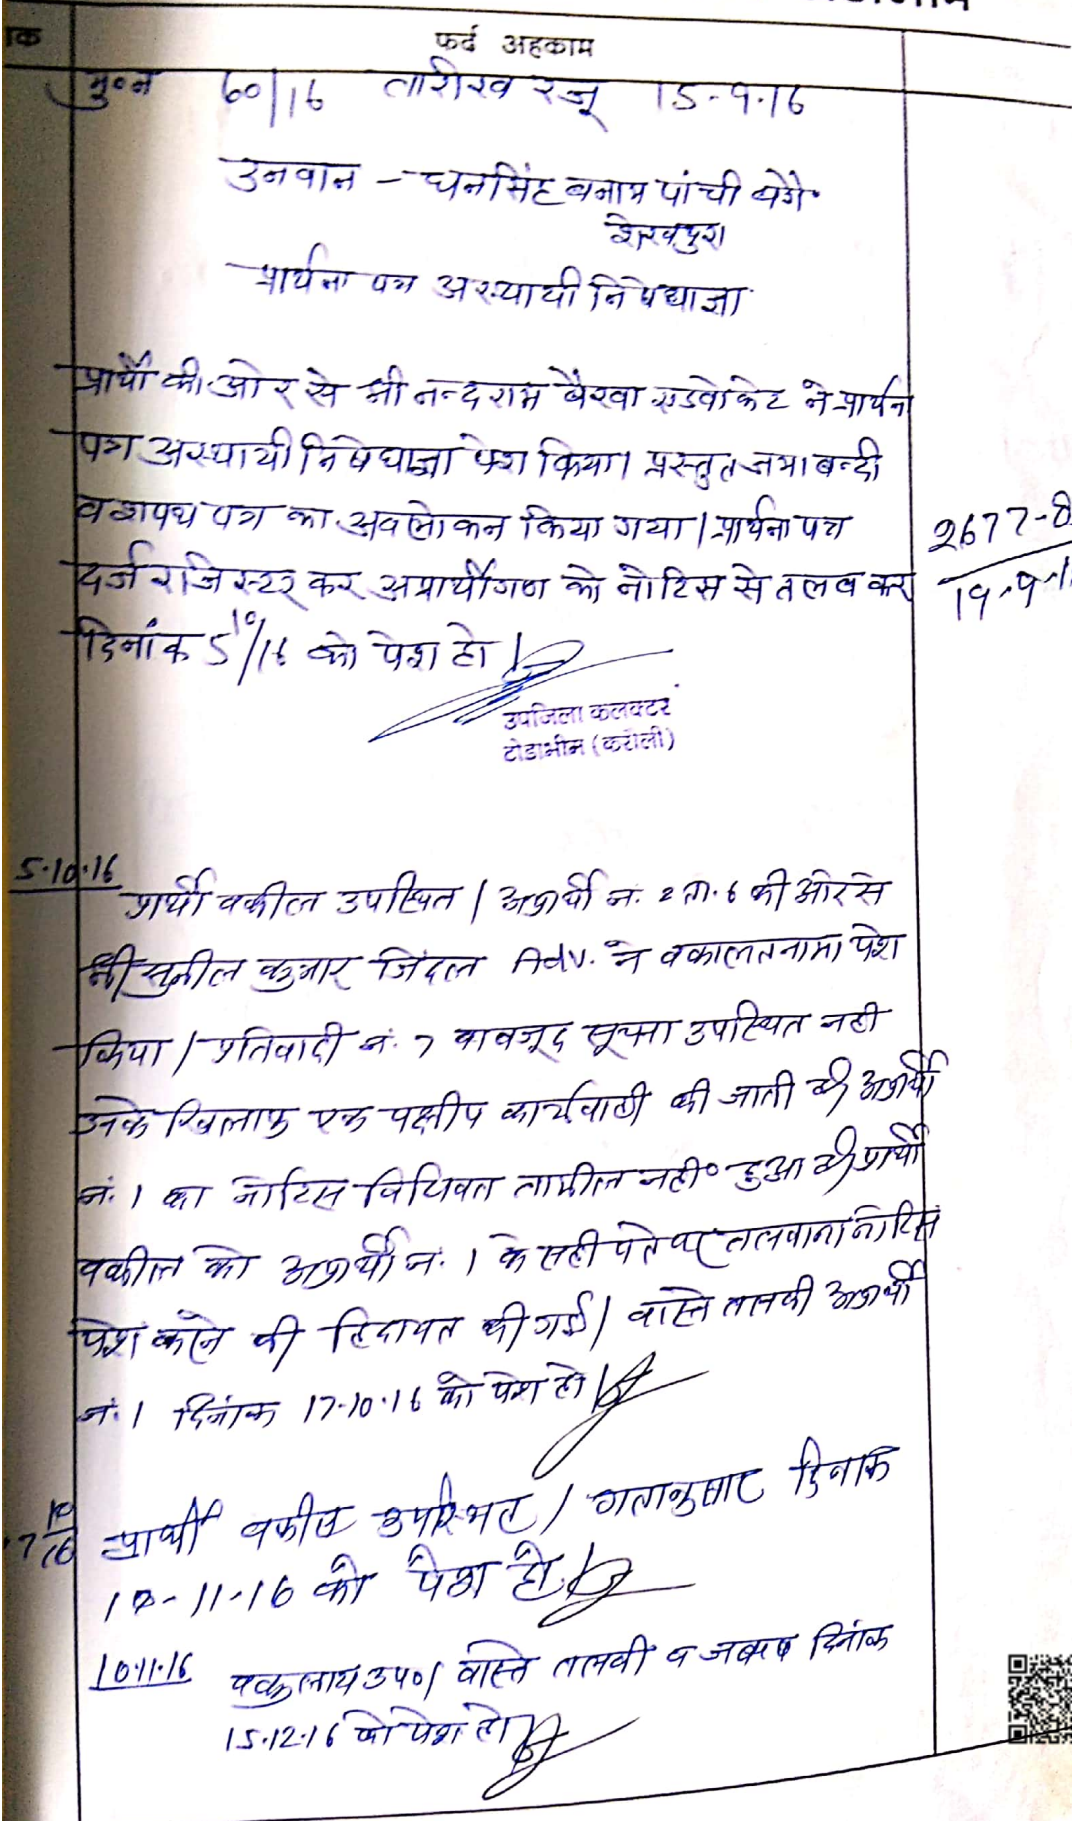 फर्द अहकाम
मु०न 60/16 तारीख रजू 15-9-16
उनवान - धनसिंह बनाम पांची वगै०
शेखपुरा
प्रार्थना पत्र अस्थायी निषेधाज्ञा
प्रार्थी की ओर से श्री नन्दराम बैरवा एडवोकेट ने प्रार्थना
पत्र अस्थायी निषेधाज्ञा पेश किया। प्रस्तुत जमाबन्दी
व शपथ पत्र का अवलोकन किया गया। प्रार्थना पत्र
दर्ज रजिस्टर कर अप्रार्थीगण को नोटिस से तलब कर
2677-8
19-9-1
दिनांक 5/10/16 को पेश हो।
उपजिला कलक्टर
टोडाभीम (करौली)
5.10.16
प्रार्थी वकील उपस्थित। अप्रार्थी नं. 2 ता. 6 की ओर से
श्री सुनील कुमार जिंदल Adv. ने वकालतनामा पेश
किया। प्रतिवादी नं. 7 बावजूद सूचना उपस्थित नही
उनके खिलाफ एक पक्षीय कार्यवाही की जाती है। अप्रार्थी
नं. 1 का नोटिस विधिवत तामील नही हुआ है। प्रार्थी
वकील को अप्रार्थी नं. 1 के सही पते पर तलवाना नोटिस
पेश करने की हिदायत की गई। वास्ते तलबी अप्रार्थी
नं. 1 दिनांक 17.10.16 को पेश हो।
प्रार्थी वकील उपस्थित। गतानुसार दिनांक
10-11-16 को पेश हो।
10.11.16
वकुलाय उप०। वास्ते तलबी व जबाब दिनांक
15.12.16 को पेश हो।